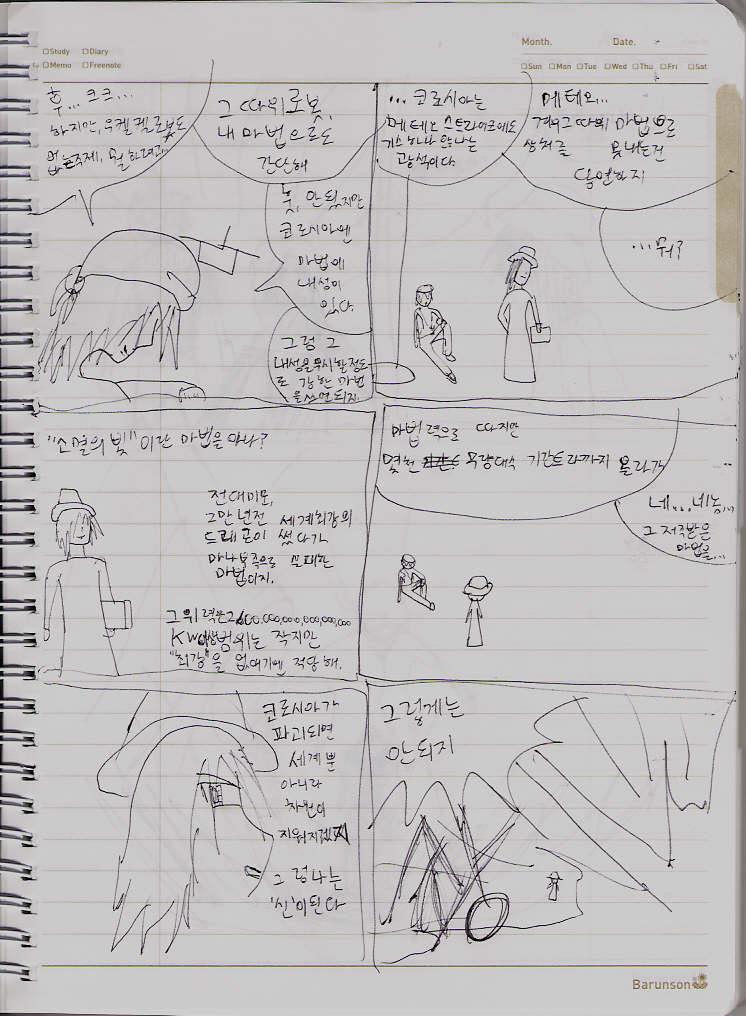 Month.
Date.
Study
Diary
Memo
Freenote
Sun
Mon
Tue
Wed
Thu
Fri
Sat
후... 크크...
하지만, 우켈켈로봇도
없는주제, 뭘 하려고
그 따위로봇,
내 마법으로도
간단해
훗, 안됬지만
코로시아엔
마법에
내성이
있다.
그럼 그
내성을 무시할정도
로 강한 마법
을쓰면되지
... 코로시아는
메테오 스트라이크에도
기스 하나 안나는
고능석이다.
메테오...
겨우그 따위 마법으로
상처를 못내는건
당연하지
...뭐?
"소멸의 빛"이란 마법을아나?
전대미문,
그만년전 세계최강의
드래곤이 썼다가
마나부족으로 실패한
마법이지.
그위력은
범위는 작지만
"최강"을 없애기엔 적당해.
마법력으로 따지만
몇천
기간트라까지 올라가
네....네놈...
그 저주받은
마법을...
코로시아가
파괴되면
세계뿐
아니라
차원이
지워지겠지
그럼나는
'신'이된다
그렇게는
안되지
Barunson